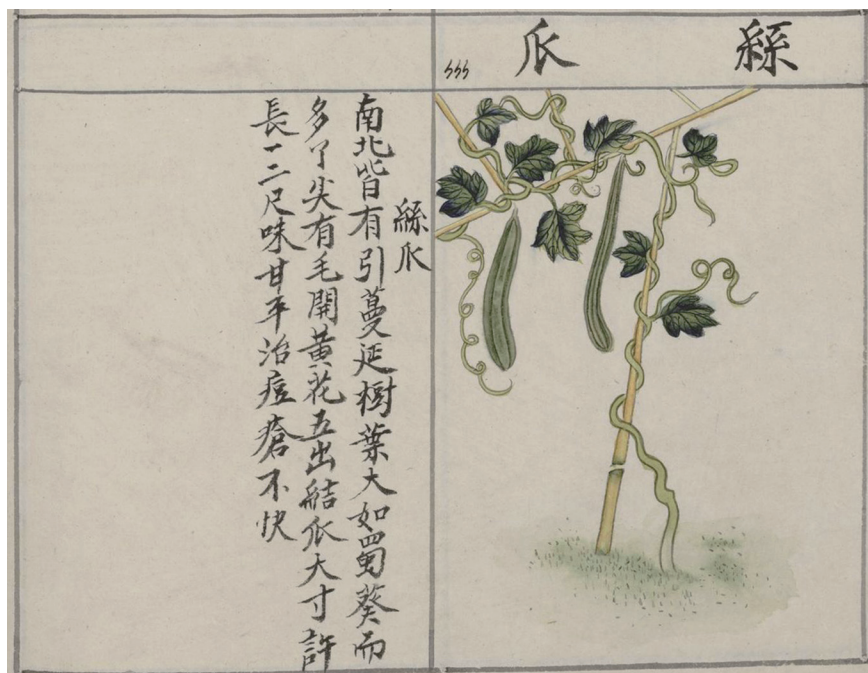 絲瓜
絲瓜
南北皆有引蔓延樹葉大如蜀葵而
多丫尖有毛開黃花五出結瓜大寸許
長一二尺味甘平治痘瘡不快